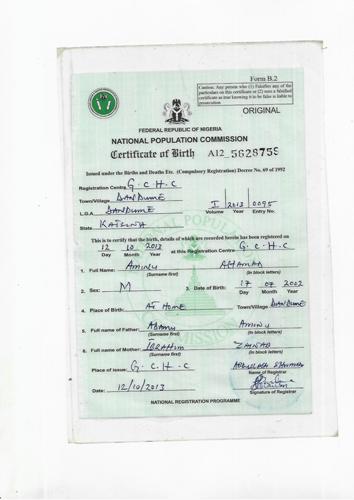 Form B.2
Caution: Any person who (1) Falsifies any of the particulars on this certificate or (2) uses a falsified certificate as true knowing it to be false is liable to prosecution
ORIGINAL
FEDERAL REPUBLIC OF NIGERIA
NATIONAL POPULATION COMMISSION
Certificate of Birth A12 5628759
Issued under the Births and Deaths Etc. (Compulsory Registration) Decree No. 69 of 1992
Registration Centre G.C.H.C
Town/Village DANDUME
L.G.A DANDUME I 2013 0095
Volume Year Entry No.
State KATSINA
This is to certify that the birth, details of which are recorded herein has been registered on
12 10 2013 at this Registration Centre G.C.H.C
Day Month Year
1. Full Name: AMINU AHAMAD
(Surname first) (In block letters)
2. Sex: M 3. Date of Birth: 17 07 2002
Day Month Year
4. Place of Birth: AT HOME Town/Village DANDUME
5. Full name of Father: ADAMU AMINU
(Surname first) (In block letters)
6. Full name of Mother: IBRAHIM ZAINAB
(Surname first) (In block letters)
Place of issue: G.C.H.C
Name of Registrar
Date: 12/10/2013
Signature of Registrar
NATIONAL REGISTRATION PROGRAMME